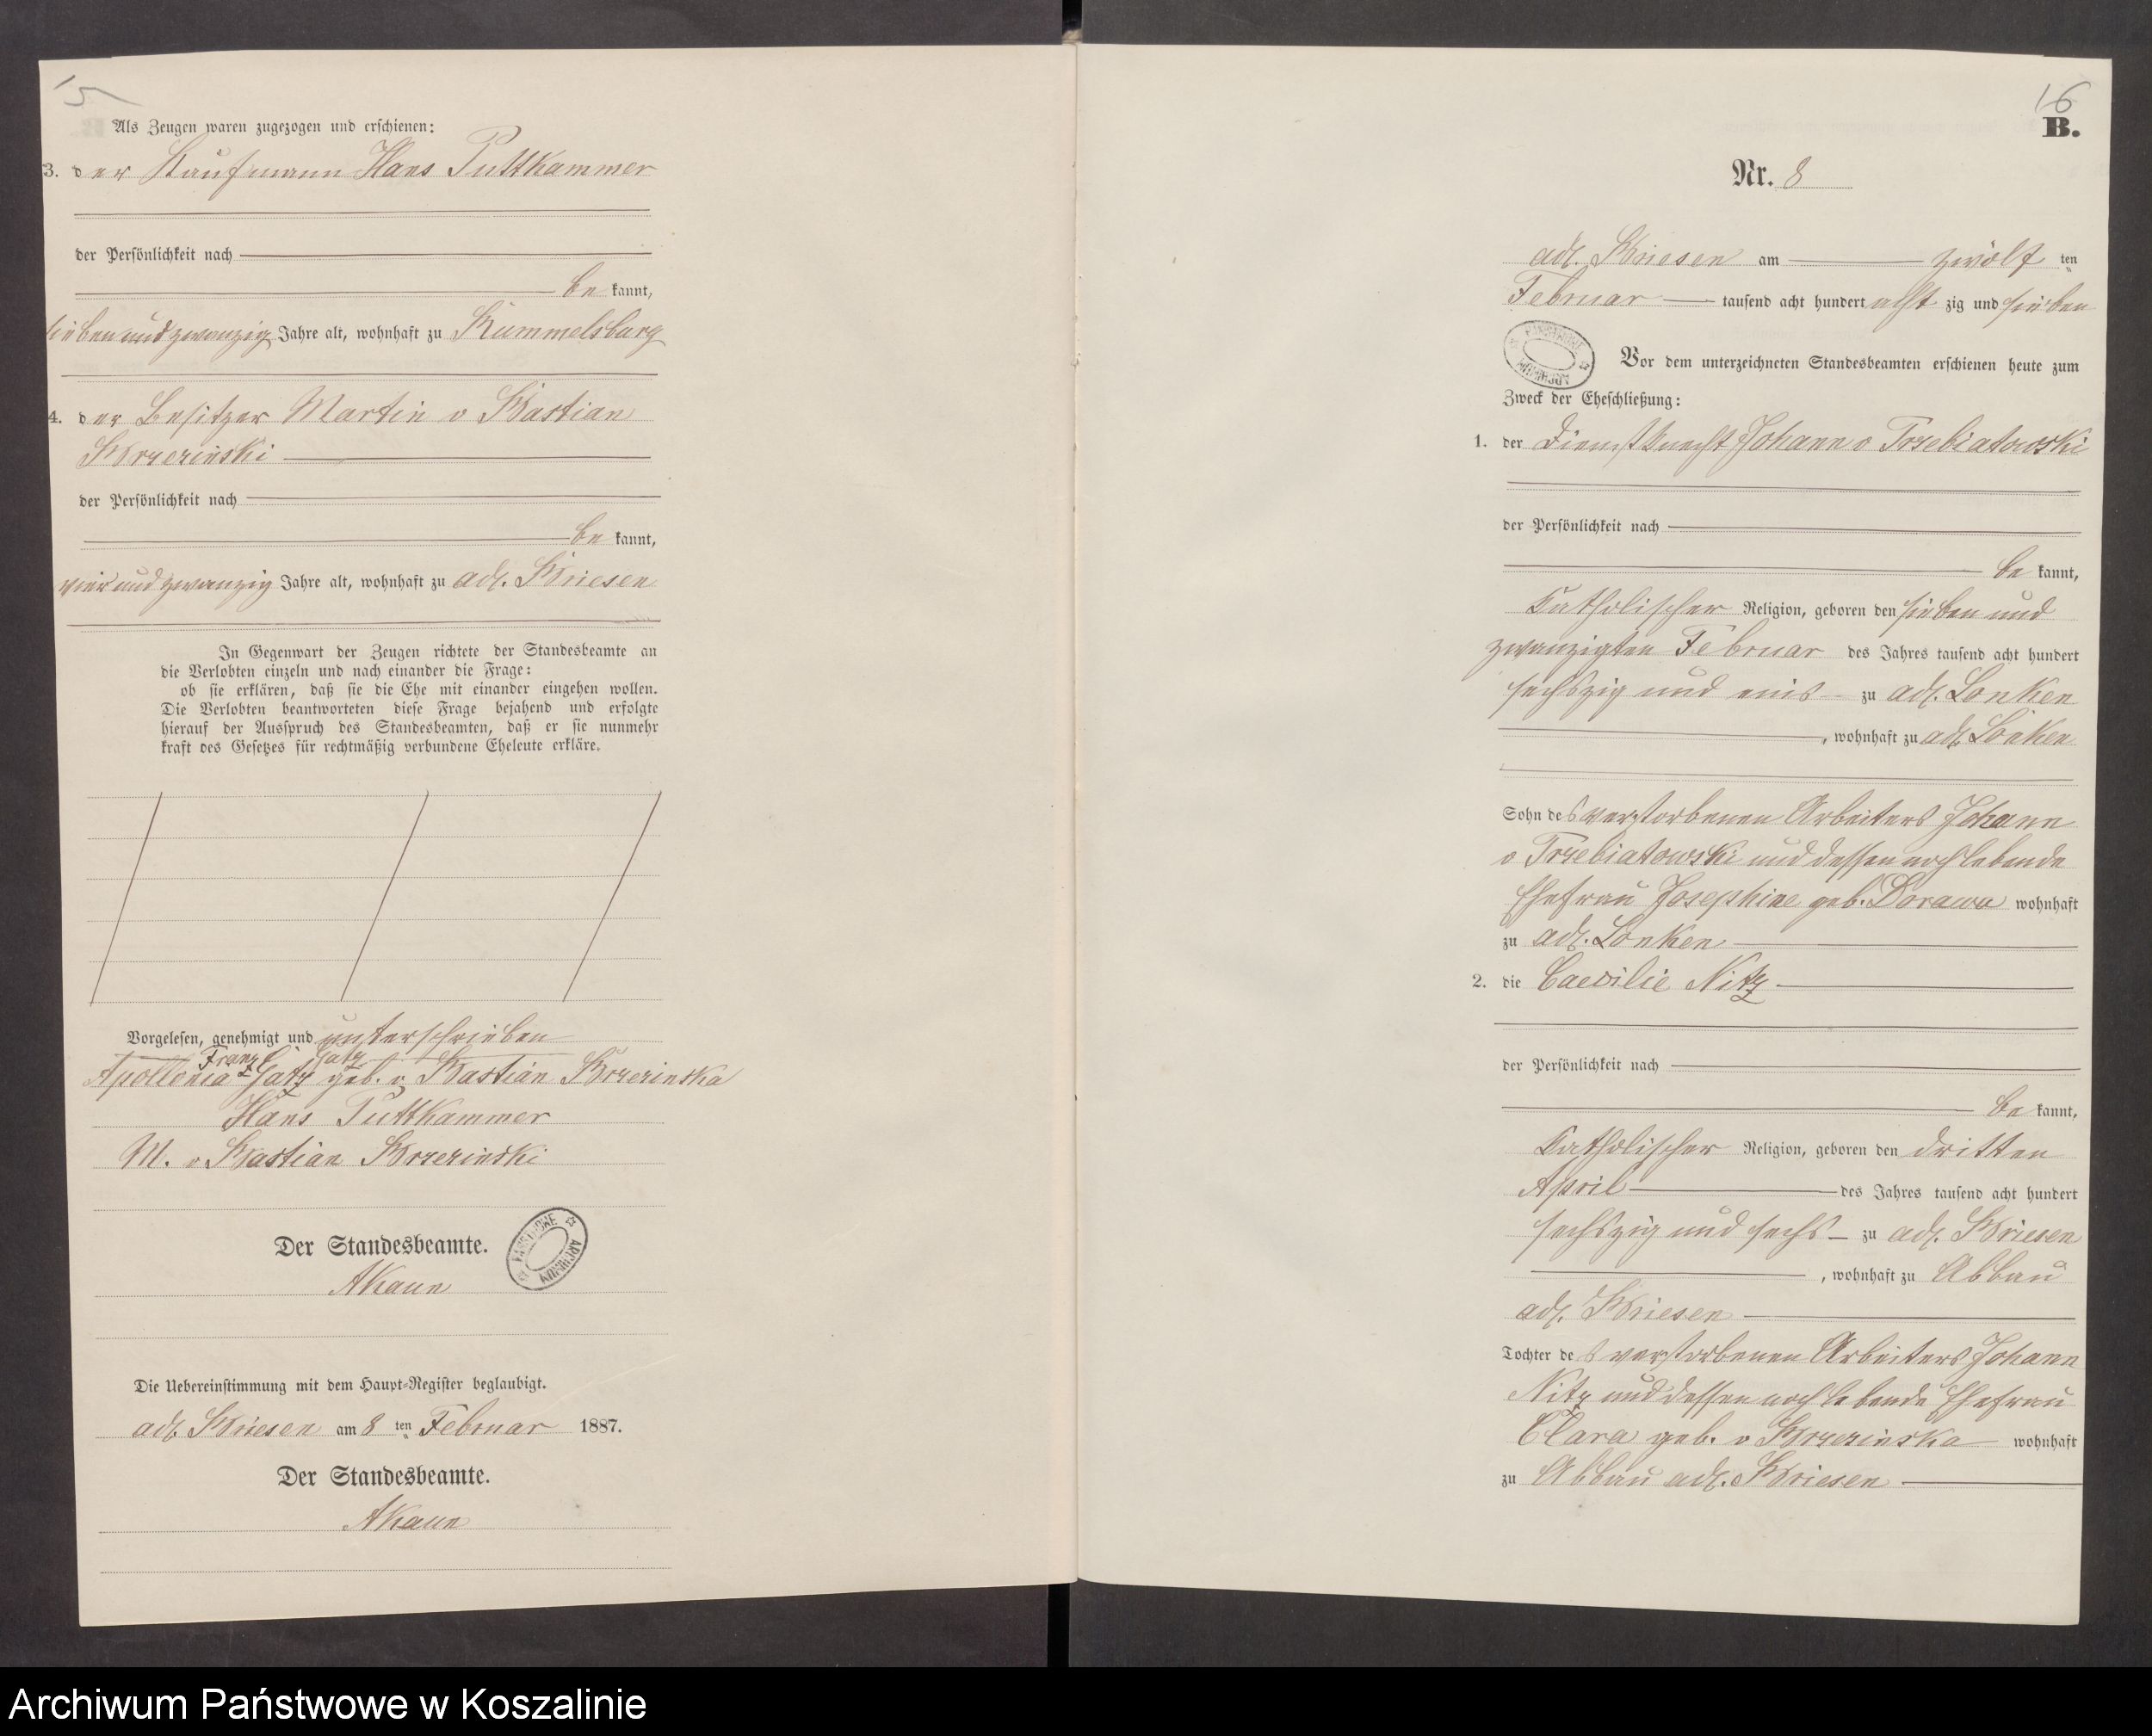 15
Als Zeugen waren zugezogen und erschienen:
3. der Kaufmann Hans Puttkammer
der Persönlichkeit nach
be kannt,
sieben und zwanzig Jahre alt, wohnhaft zu Rummelsburg
4. der Besitzer Martin v Bastian
Brzezinski
der Persönlichkeit nach
be kannt,
vier und zwanzig Jahre alt, wohnhaft zu adl. Briesen
In Gegenwart der Zeugen richtete der Standesbeamte an
die Verlobten einzeln und nach einander die Frage:
ob sie erklären, daß sie die Ehe mit einander eingehen wollen.
Die Verlobten beantworteten diese Frage bejahend und erfolgte
hierauf der Ausspruch des Standesbeamten, daß er sie nunmehr
kraft des Gesetzes für rechtmäßig verbundene Eheleute erkläre.
Vorgelesen, genehmigt und unterschrieben
Franz Gatz
Apollonia Gatz geb. v Bastian Brzezinska
Hans Puttkammer
M. v Bastian Brzezinski
Der Standesbeamte.
AKaun
Die Uebereinstimmung mit dem Haupt-Register beglaubigt.
adl. Briesen am 8 ten Februar 1887.
Der Standesbeamte.
AKaun
16
B.
Nr. 8
adl. Briesen am zwölf ten
Februar tausend acht hundert acht zig und sieben
Vor dem unterzeichneten Standesbeamten erschienen heute zum
Zweck der Eheschließung:
1. der Dienstknecht Johann v Trzebiatowski
der Persönlichkeit nach
be kannt,
katholischer Religion, geboren den sieben und
zwanzigten Februar des Jahres tausend acht hundert
sechszig und eins zu adl. Lonken
, wohnhaft zu adl. Lonken
Sohn des verstorbenen Arbeiters Johann
v Trzebiatowski und dessen noch lebende
Ehefrau Josephine geb. Dorawa wohnhaft
zu adl. Lonken
2. die Caecilie Nitz
der Persönlichkeit nach
be kannt,
katholischer Religion, geboren den dritten
April des Jahres tausend acht hundert
sechszig und sechs zu adl. Briesen
, wohnhaft zu Abbau
adl. Briesen
Tochter des verstorbenen Arbeiters Johann
Nitz und dessen noch lebende Ehefrau
Clara geb. v Brzezinska wohnhaft
zu Abbau adl. Briesen
Archiwum Państwowe w Koszalinie